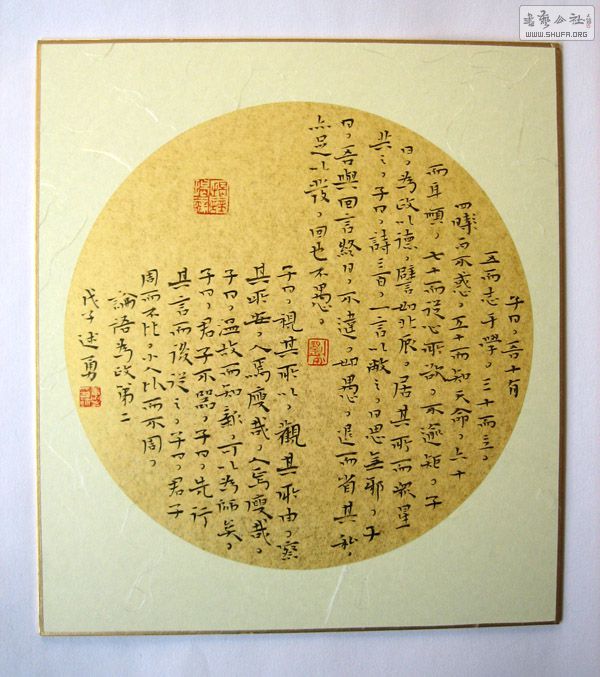 子曰。吾十有
五而志乎學。三十而立。
四時而不惑。五十而知天命。六十
而耳順。七十而從心所欲。不逾矩。子
曰。為政以德。譬如北辰。居其所而眾星
共之。子曰。詩三百。一言以蔽之。曰思無邪。子
曰。吾與回言終日。不違。如愚。退而省其私。
亦足以發。回也不愚。
子曰。視其所以。觀其所由。察
其所安。人焉廋哉。人焉廋哉。
子曰。溫故而知新。可以為師矣。
子曰。君子不器。子曰。先行
其言而後從之。子曰。君子
周而不比。小人比而不周。
論語為政第二
戊子述勇
書藝公社
WWW.SHUFA.ORG